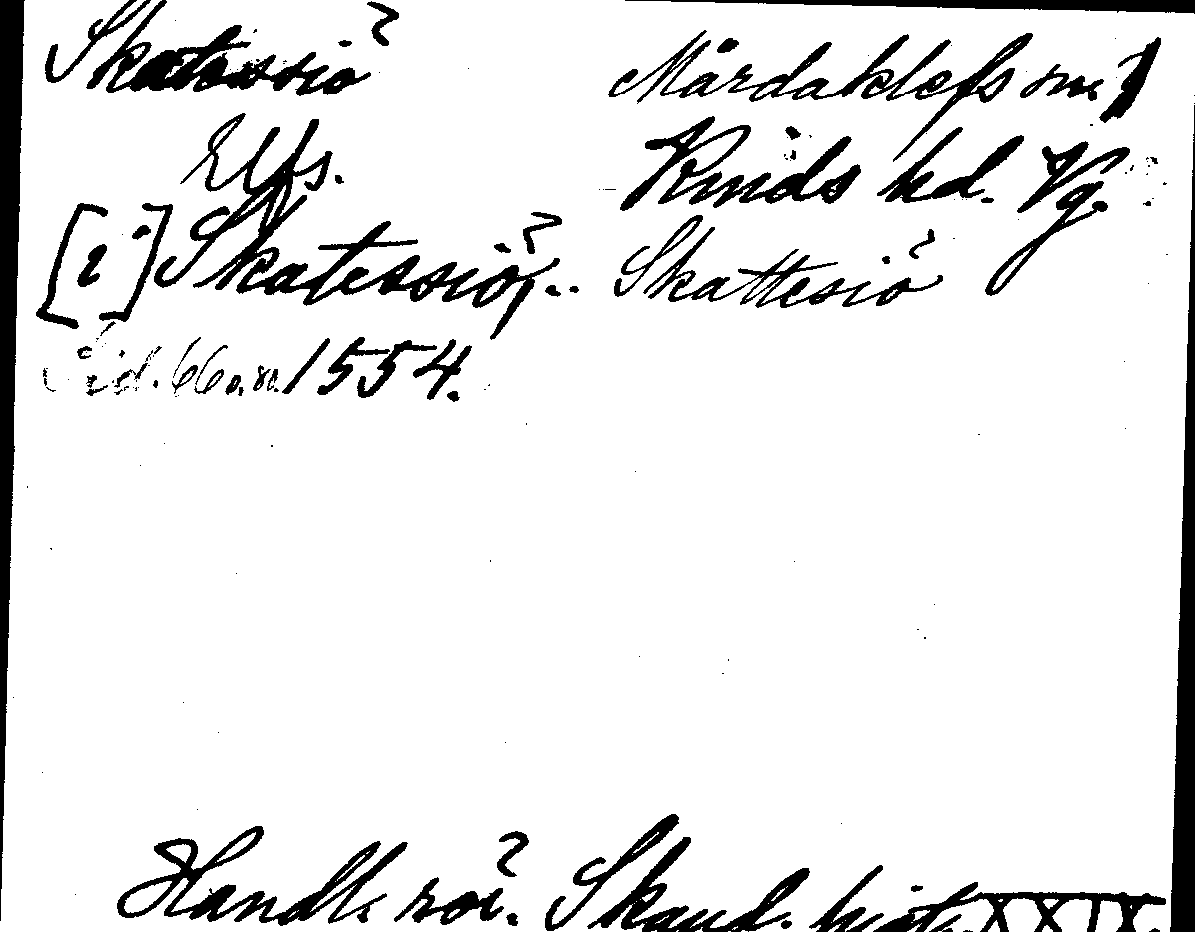 Skatessiö
Mårdaklefs sn.
Elfs.
Kinds hd. Vg.
[i] Skatessiö,..
Skattesiö
Sid. 66 1554.
Handl. rör. Skand. hist. XXIX.